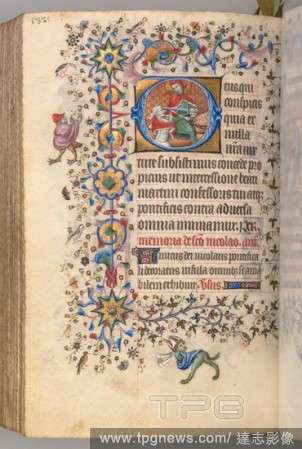 eus qui
conspicis
quia ex
nulla
nra uir
tute subsistimus concede pro
picius ut intercessione beati
martini confessoris tui atqz
pontificis contra aduersa
omnia muniamur. Per.
memoria de sco nicolao. ant.
pontifica
infula omnibz se ama
bilem exhibuit. Vsus
TPG
www.tpgnews.com/ 達志影像